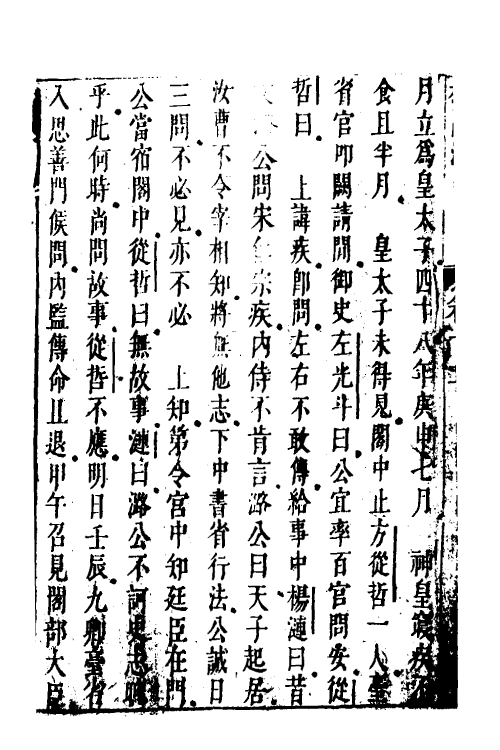 月立爲皇太子四十八年庚申七月 神皇寢疾不
食且半月 皇太子未得見閣中止方從哲一人臺
省官叩閽請問御史左光斗曰公宜率百官問安從
哲曰 上諱疾卽問左右不敢傳給事中楊漣曰昔
公問宋仁宗疾內侍不肯言潞公曰天子起居
汝曹不令宰相知將無他志下中書省行法公誠日
三問不必見亦不必 上知第令官中知廷臣在門
公當宿閣中從哲曰無故事漣曰潞公不訶史志聰
乎此何時尚問故事從哲不應明日壬辰九卿臺省
入思善門候問內監傳命且退甲午召見閣部大臣